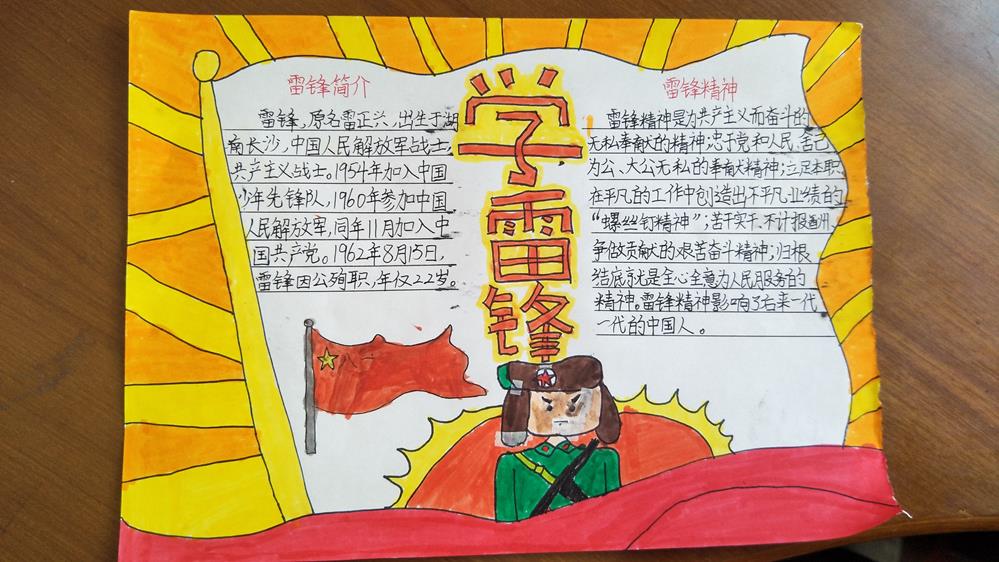 雷锋简介
雷锋,原名雷正兴,出生于湖
南长沙,中国人民解放军战士,
共产主义战士。1954年加入中国
少年先锋队,1960年参加中国
人民解放军,同年11月加入中
国共产党。1962年8月15日,
雷锋因公殉职,年仅22岁。
八一
学雷锋
雷锋精神
雷锋精神是为共产主义而奋斗的
无私奉献的精神;忠于党和人民、舍己
为公、大公无私的奉献精神;立足本职
在平凡的工作中创造出不平凡业绩的
“螺丝钉精神”;苦干实干、不计报酬、
争做贡献的艰苦奋斗精神;归根
结底就是全心全意为人民服务的
精神。雷锋精神影响了后来一代
一代的中国人。